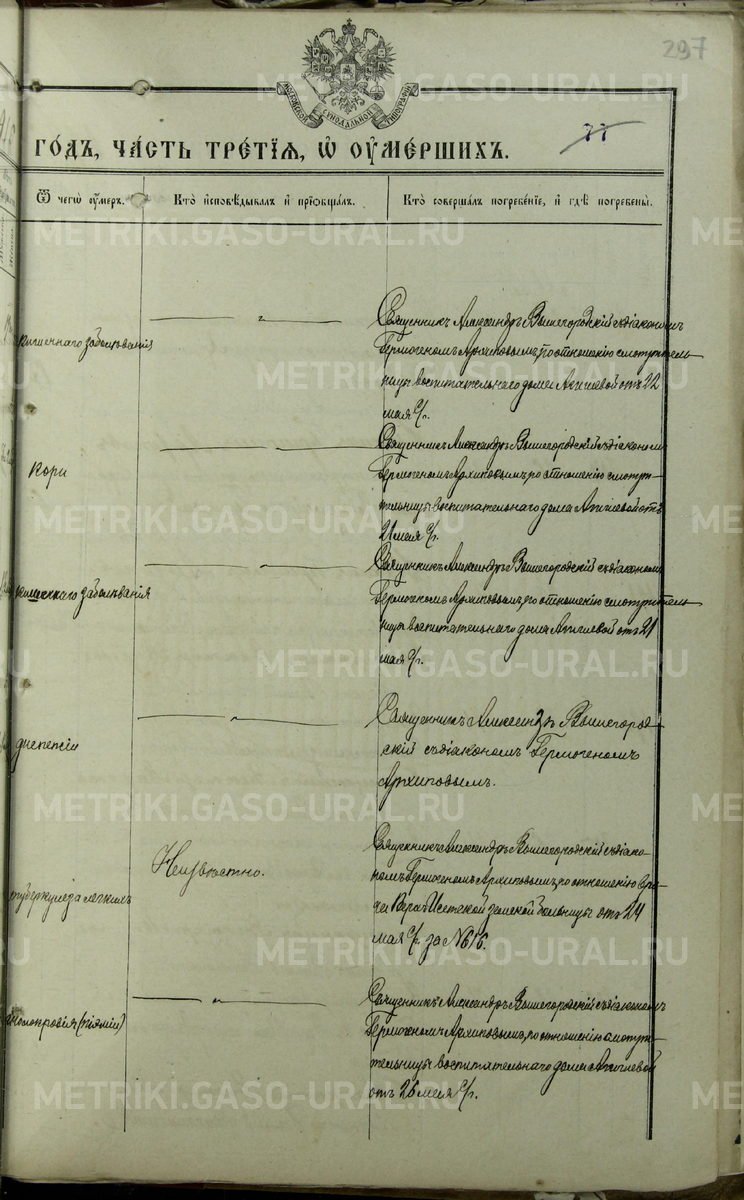 297
77
МОСКОВСКОЙ СѴНОДАЛЬНОЙ ТИПОГРАФІИ
ГО́ДЪ, ЧА́СТЬ ТРЕ́ТІЯ, Ѡ҆ ОУ҆МЕ́РШИХЪ.
Ѿ чегѡ̀ оу҆́меръ.
Кто̀ и҆сповѣ́дывалъ и҆ прїѡбща́лъ.
Кто̀ соверша́лъ погребе́нїе, и҆ гдѣ̀ погребены̀.
кишечнаго заболѣванія
Священникъ Александръ Вышегородскій съ діакономъ
Гермогеномъ Архиповымъ, по отношенію смотритель-
ницы воспитательнаго дома Агишевой отъ 22
мая с/г.
Кори
Священникъ Александръ Вышегородскій съ діакономъ
Гермогеномъ Архиповымъ, по отношенію смотри-
тельницы воспитательнаго дома Агишевой отъ
21 мая с/г.
кишечнаго заболѣванія
Священникъ Александръ Вышегородскій съ діакономъ
Гермогеномъ Архиповымъ, по отношенію смотритель-
ницы воспитательнаго дома Агишевой отъ 21
мая с/г.
диспепсіи
Священникъ Александръ Вышегород-
скій съ діакономъ Гермогеномъ
Архиповымъ.
туберкулеза легкихъ
Неизвѣстно.
Священникъ Александръ Вышегородскій съ діако-
номъ Гермогеномъ Архиповымъ, по отношенію вра-
ча Верхъ-Исетской земской больницы отъ 24
мая с/г. за № 616.
(піэміи)
Священникъ Александръ Вышегородскій съ діакономъ
Гермогеномъ Архиповымъ, по отношенію смотри-
тельницы воспитательнаго дома Агишевой
отъ 26 мая с/г.
METRIKI.GASO-URAL.RU